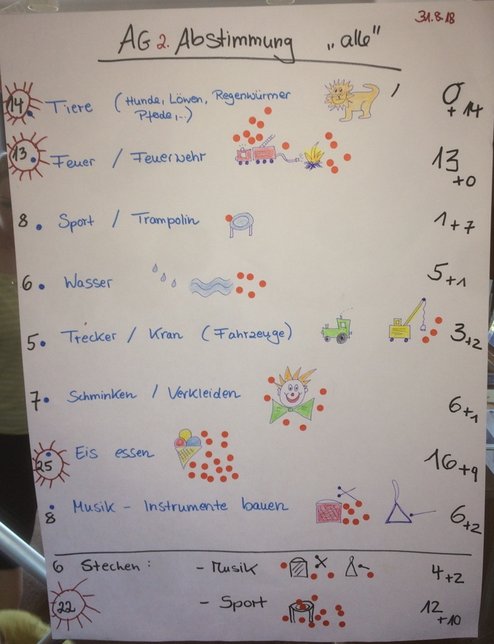 31.8.18
AG 2. Abstimmung „alle"
14. Tiere (Hunde, Löwen, Regenwürmer 0 + 14
Pferde,..)
13. Feuer / Feuerwehr 13 +0
8. Sport / Trampolin 1+7
6. Wasser 5+1
5. Trecker / Kran (Fahrzeuge) 3+2
7. Schminken / Verkleiden 6+1
25 Eis essen 16+9
8 Musik - Instrumente bauen 6+2
6 Stechen: - Musik 4+2
22 - Sport 12 +10